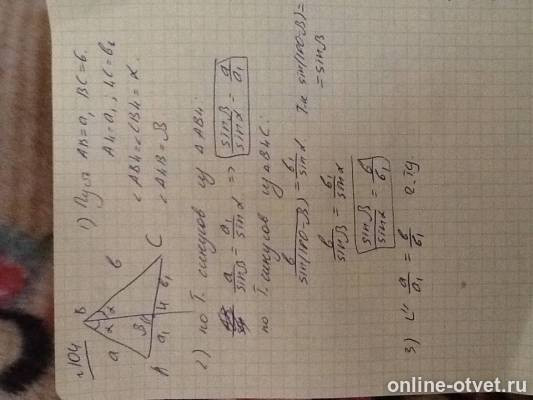 №104
B
a
α α
b
C
β
a₁
H
b₁
A
1) Пусть AB=a, BC=b.
AH=a₁, HC=b₁
∠ABH=∠CBH=α.
∠AHB=β
2) по Т. синусов из ΔABH:
a/sinβ = a₁/sinα => sinβ/sinα = a/a₁
по Т. синусов из ΔBHC:
b/sin(180-β) = b₁/sinα
Т.к. sin(180-β)=
=sinβ
b/sinβ = b₁/sinα
sinβ/sinα = b/b₁
3) a/a₁ = b/b₁ ч.тд
online-otvet.ru